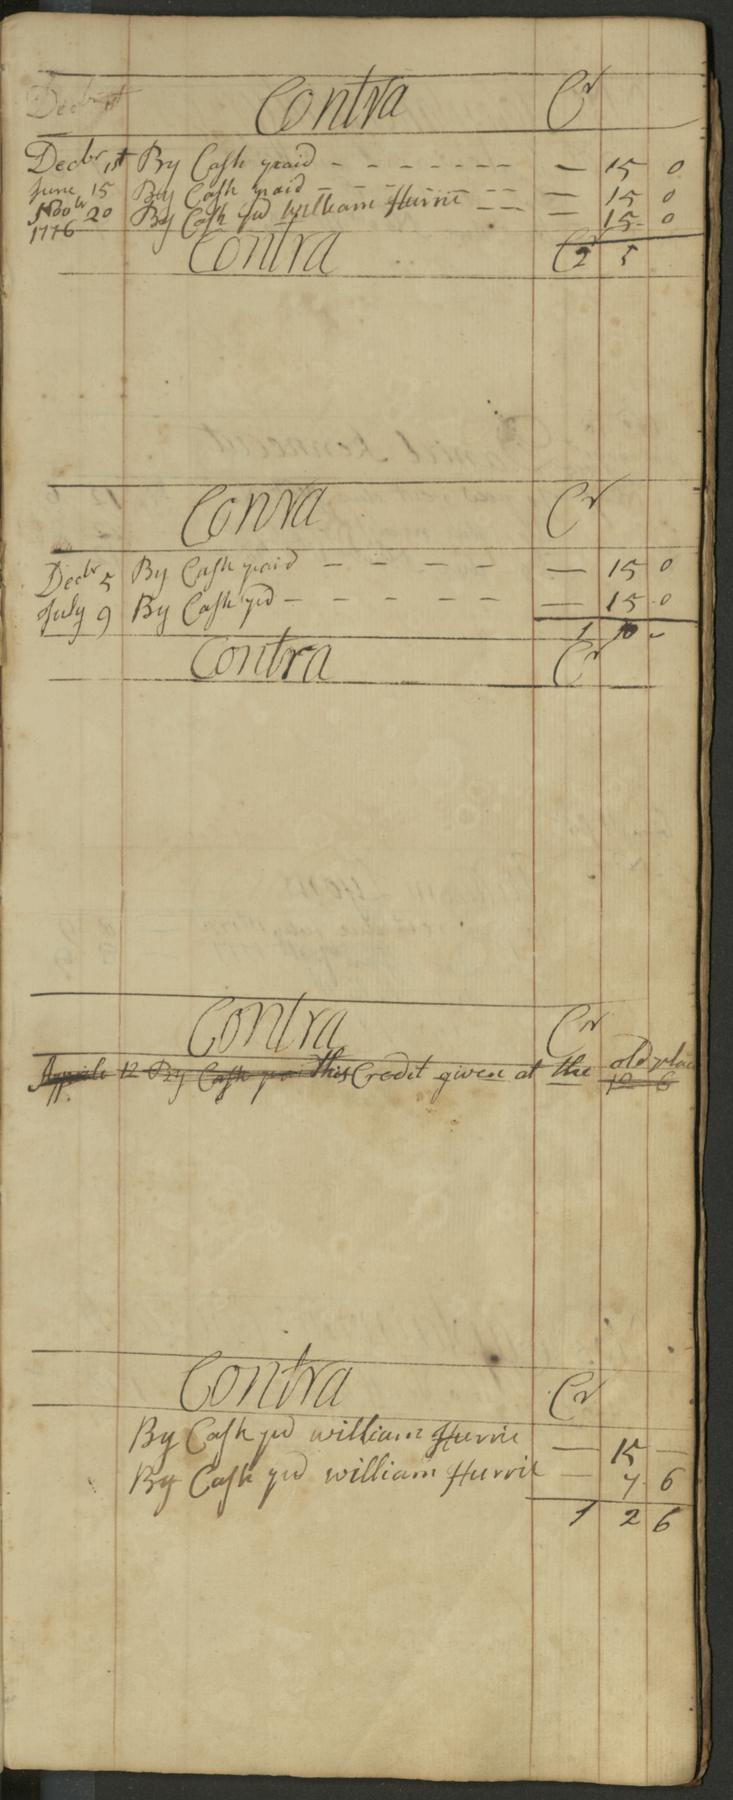 Decbr 1st Contra Cr
Decbr 1st By Cash paid - - - - - - - — 15 0
June 15 By Cash paid - - - - - — 15 0
Novbr 20 By Cash pd William Hurrie - - — 15 0
1776
Contra Cr 2 5
Conra Cr
Decbr 5 By Cash paid - - - - — 15 0
July 9 By Cash pd - - - - - — 15 0
1 10 -
Contra Cr
Contra Cr
Apprile 12 By Cash pd This Credit given at the old place
12 6
Contra Cr
By Cash pd william Hurrie — 15 —
By Cash pd william Hurrie — 7 6
1 2 6